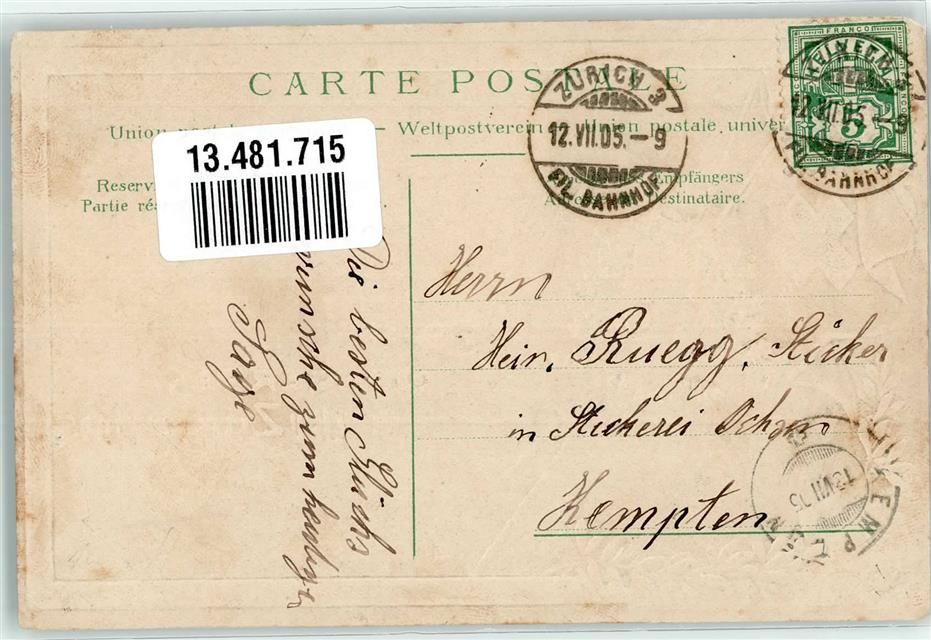 CARTE POSTALE
Union postale — Weltpostverein — Union postale univer
13.481.715
Reserv Empfängers
Partie ré Destinataire.
FRANCO
HELVETIA
5
ZÜRICH 3
12.VII.05.–9
FIL. BAHNHOF
12.VII.05.–9
FIL. BAHNHOF
Herrn
Hein. Ruegg, Sticker
in Stickerei Ochsen
Kempten
KEMPTEN
12 VII 05
Die besten Glücks
wünsche zum heutigen
Tage